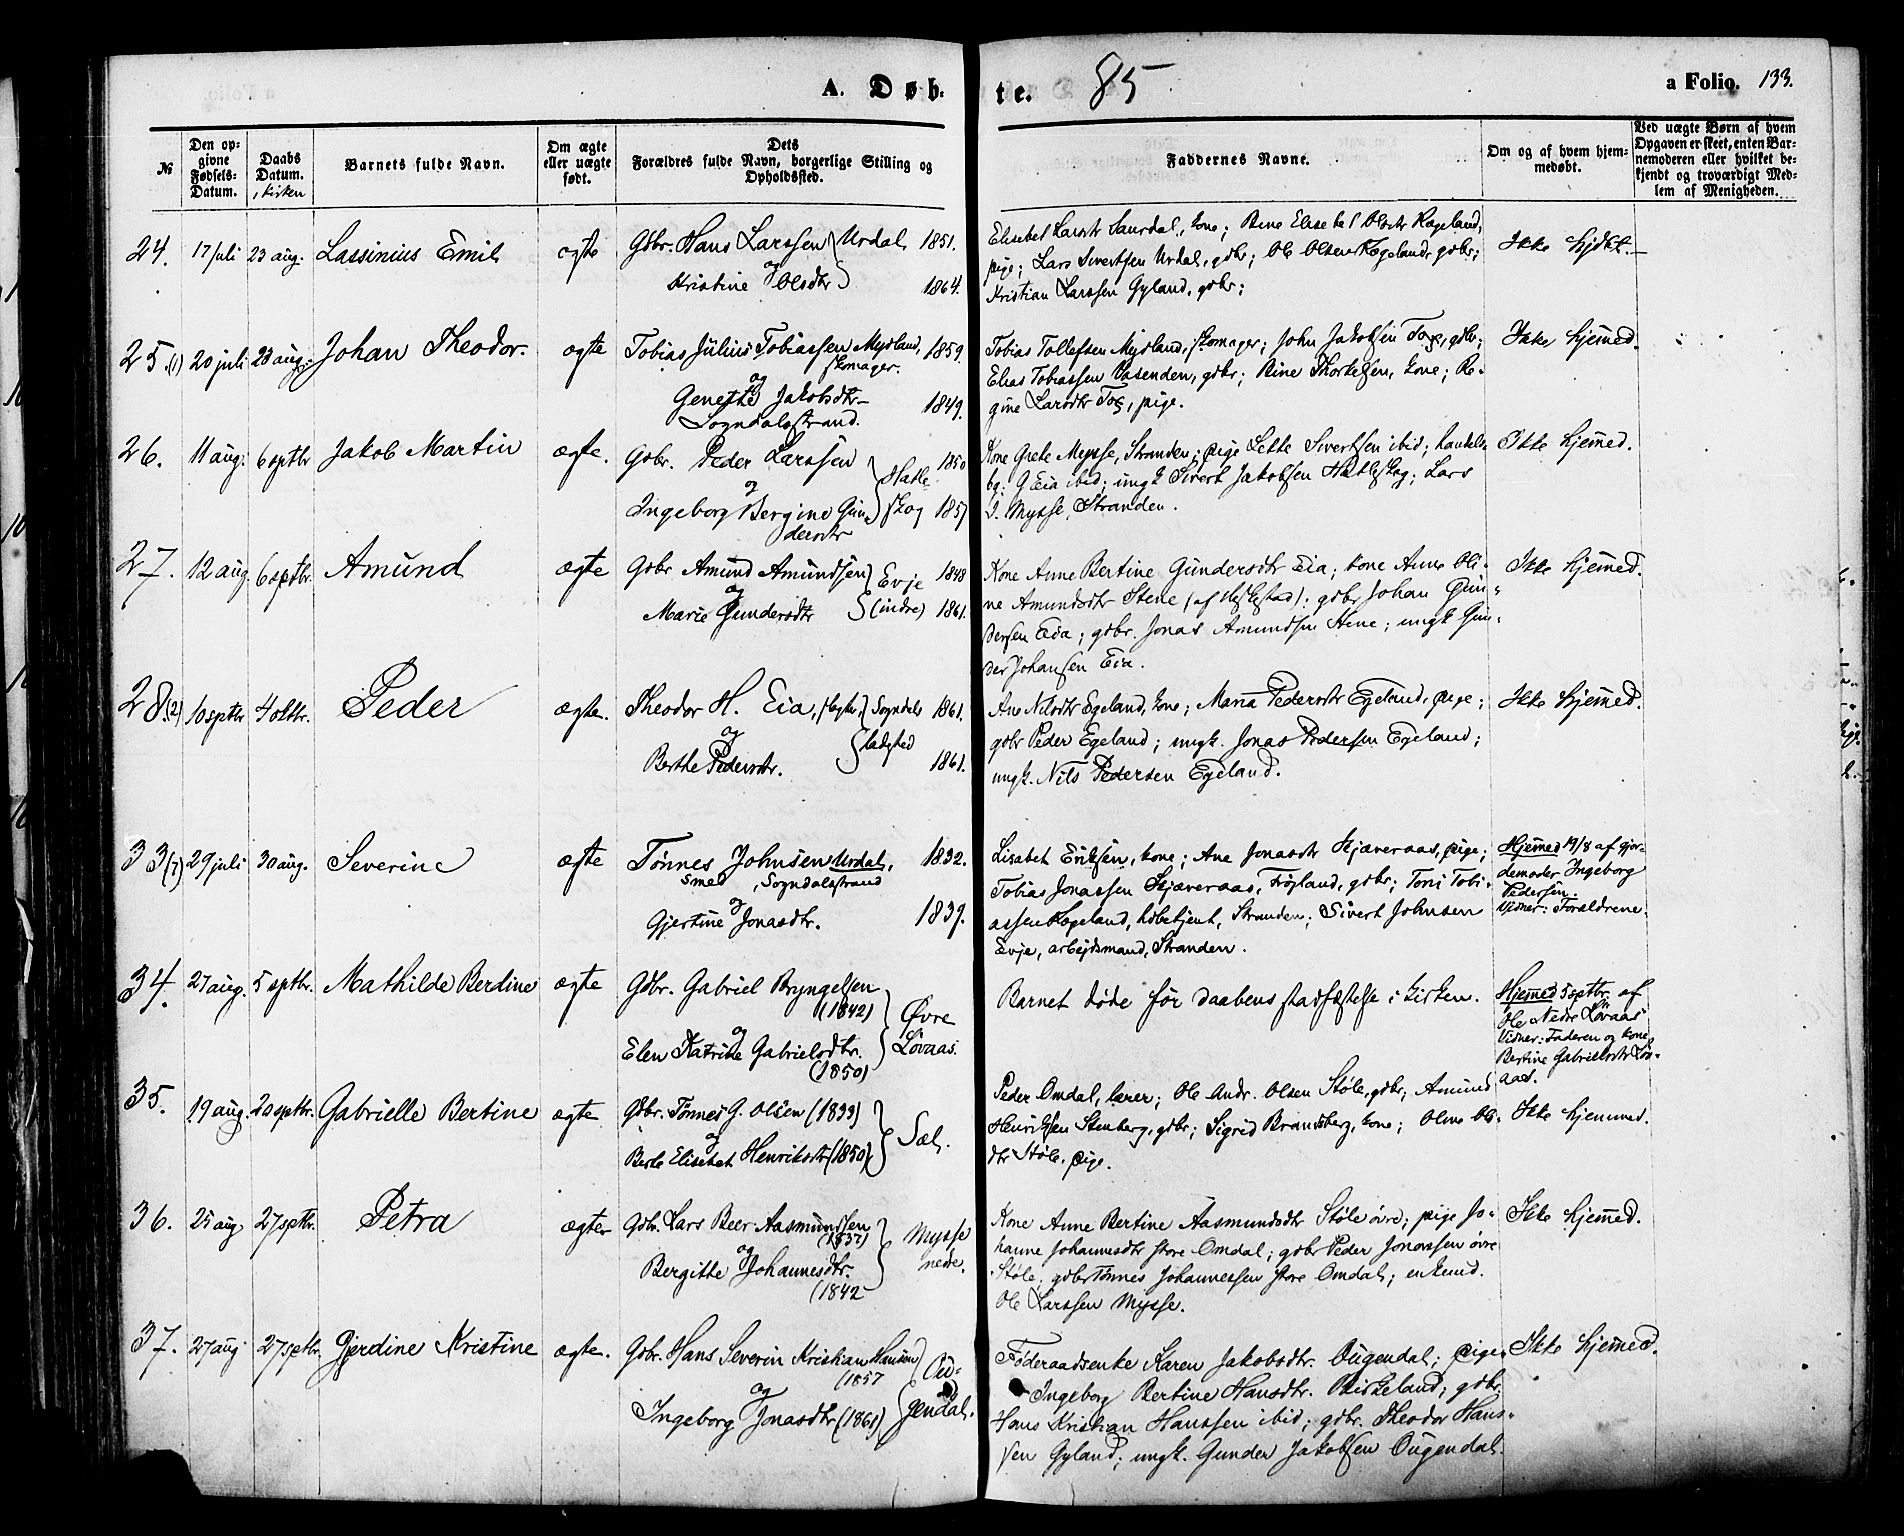 A. Døb-
te. 85
a Folio. 133.
№
Den op-
givne
Fødsels-
Datum.
Daabs
Datum.
, kirken
Barnets fulde Navn.
Om ægte
eller uægte
født.
Dets
Forældres fulde Navn, borgerlige Stilling og
Opholdssted.
Faddernes Navne.
Om og af hvem hjem-
medøbt.
Ved uægte Børn af hvem
Opgaven er skeet, enten Bar-
nemoderen eller hvilket be-
kjendt og troværdigt Med-
lem af Menigheden.
24. 17 juli 23 aug. Lassinius Emil ægte Gdbr. Hans Larssen Urdal 1851.
og
Kristine Olsdtr 1864.
Elisabet Larsdtr Saurdal, kone; Bine Elisabet Olsdtr Rægeland,
pige; Lars Sivertsen Urdal, gdbr; Ole Olsen Rægeland, gdbr;
Kristian Larssen Gyland, gdbr;
Ikke hjdbt.
25.(1) 20 juli 23 aug. Johan Theodor. ægte Tobias Julius Tobiassen Mydland, 1859.
skomager.
og
Genette Jakobsdtr 1849.
Sogndalsstrand.
Tobias Tollefsen Mydland, skomager; John Jakobsen Tog, gdbr;
Elias Tobiassen Vasenden, gdbr; Bine Thorkelsen, kone; Re-
gine Larsdtr Tog, pige.
Ikke hjemmed.
26. 11 aug. 6 septbr Jakob Martin ægte. Gdbr. Peder Larssen 1850
og
Hatle-
Ingeborg Bergine Gun- skog 1857
dersdtr
Kone Grete Mysse, Stranden; pige Lette Sivertsen ibid; handels-
bg. G Eia ibid; ungk Sivert Jakobsen Hatleskog; Lars
J. Mysse, Stranden.
Ikke hjemmed.
27. 12 aug. 6 septbr. Amund ægte Gdbr Amund Amundsen Evje 1848
og
Marie Gundersdtr (indre) 1861.
Kone Anne Bertine Gundersdtr Eia; kone Anne Oli-
ne Amundsdtr Stene (af Heskestad); gdbr Johan Gun-
dersen Eia; gdbr. Jonas Amundsen Stene; ungk Gun-
der Johansen Eia.
Ikke hjemmed.
28.(2) 10 septbr 4 oktbr. Peder ægte. Theodor H. Eia, Sogndals 1861.
og
ladested
Berthe Pedersdtr. 1861.
Ane Nilsdtr Egeland, kone; Maria Pedersdtr Egeland, pige;
gdbr Peder Egeland; ungk. Jonas Pedersen Egeland;
ungk. Nils Pedersen Egeland.
Ikke hjemmed.
33(7) 29 juli 30 aug. Severine ægte Tønnes Johnsen Urdal, 1832.
smed, Sogndalsstrand
og
Gjertine Jonasdtr. 1839.
Lisabet Eriksen, kone; Ane Jonasdtr Skjæveraas, pige;
Tobias Jonassen Skjæveraas, Frøyland, gdbr; Toni Tobi-
assen Rægeland, Stranden; Sivert Johnsen
Evje, arbejdsmand, Stranden.
Hjemmed 19/8 af gjor-
demoder Ingeborg
Pedersen.
Vidner: Forældrene.
34. 27 aug. 5 septbr. Mathilde Berdine ægte Gdbr. Gabriel Bryngelsen
(1842)
og
Øvre
Elen Katrine Gabrielsdtr. Løvaas.
(1850)
Barnet døde før daabens stadfæstelse i kirken.
Hjemmed 5 septbr. af
Ole Nedre Løvaas
Vidner: Faderen og kone
Bertine Gabrielsdtr Løv-
aas.
35. 19 aug. 20 septbr. Gabrielle Bertine ægte Gdbr. Tønnes G. Olsen (1839)
og
Sæl.
Berte Elisabet Henriksdtr (1850)
Peder Omdal, lærer; Ole Andr. Olsen Støle, gdbr; Amund
Henriksen Stenberg, gdbr; Sigrid Brandsberg, kone; Oline Ols-
dtr Støle, pige.
Ikke hjemmed.
36. 25 aug 27 septbr. Petra ægte Gdbr. Lars Beer Aasmundsen
(1837)
og
Mysse
Bergitte Johannesdtr. nedre.
(1842
Kone Anne Bertine Aasmundsdtr Støle øvre; pige Jo-
hanne Johannesdtr store Omdal; gdbr Peder Jonassen øvre
Støle; gdbr Tønnes Johannessen store Omdal; enkemd.
Ole Larssen Mysse.
Ikke hjemmed.
37. 27 aug 27 septbr. Gjerdine Kristine ægte. Gdbr. Hans Severin Kristian Hansen
(1857
og
Ou-
Ingeborg Jonasdtr (1861) gendal.
Føderaadsenke Karen Jakobsdtr. Ougendal; pige
Ingeborg Bertine Hansdtr. Birkeland; gdbr.
Hans Kristian Hanssen ibid; gdbr. Theodor Hans-
sen Gyland; ungk. Gunder Jakobsen Ougendal.
Ikke hjemmed.